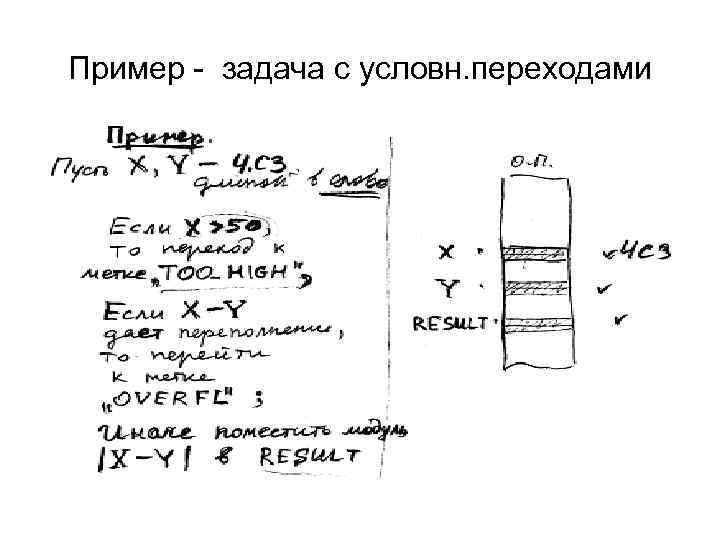 Пример - задача с условн.переходами
Пример.
Пусть X, Y – ЧСЗ
длиной в слово
Если X>50,
то переход к
метке „TOO_HIGH",
Если X–Y
дает переполнение,
то перейти
к метке
„OVERFL" ;
Иначе поместить модуль
|X–Y| в RESULT
О.П.
X ЧСЗ
Y
RESULT